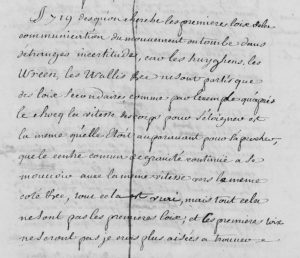 § 719 des qu'on cherche les premieres loix de la
communication du mouvement on tombe dans
d'etranges incertitudes, car les huyghens, les
Wreen, les Wallis &c ne sont partis que
des loix secondaires comme par exemple qu'apres
le choq la vitesse des corps pour s'eloigner est
la meme qu'elle etoit auparavant pour s'approcher,
que le centre commun de gravité continue a se
mouvoir avec la meme vitesse vers le meme
coté &c, tout cela est vrai, mais tout cela
ne sont pas les premieres loix; et ces premieres loix
ne seront pas je crois plus aisées a trouver